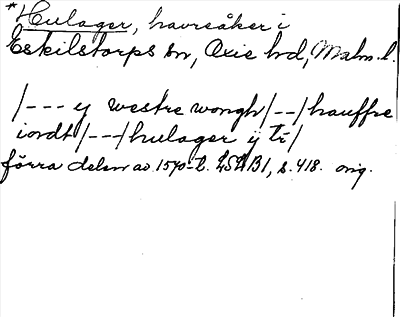 *Hulager, havreåker i
Eskilstorps sn, Oxie hd, Malm. l.
/--- ij westre wongh/--/hauffre
iordt/---/hulager ij tr/
förra delen av 1570-t. LSÄ B1, s. 418. orig.